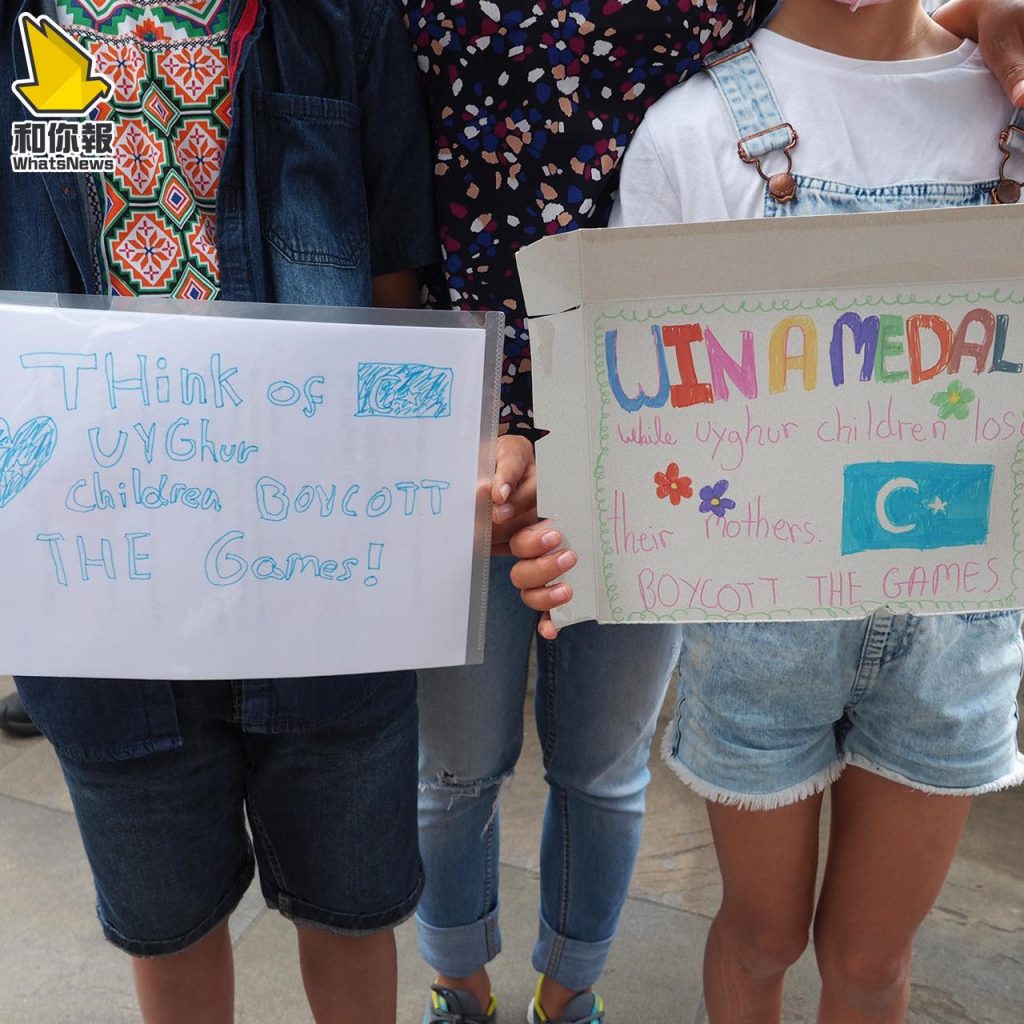 和你報
WhatsNews
THink of
UYGhur
children BOYCOTT
THE Games!
WIN A MEDAL
while uyghur children lose
their mothers.
BOYCOTT THE GAMES